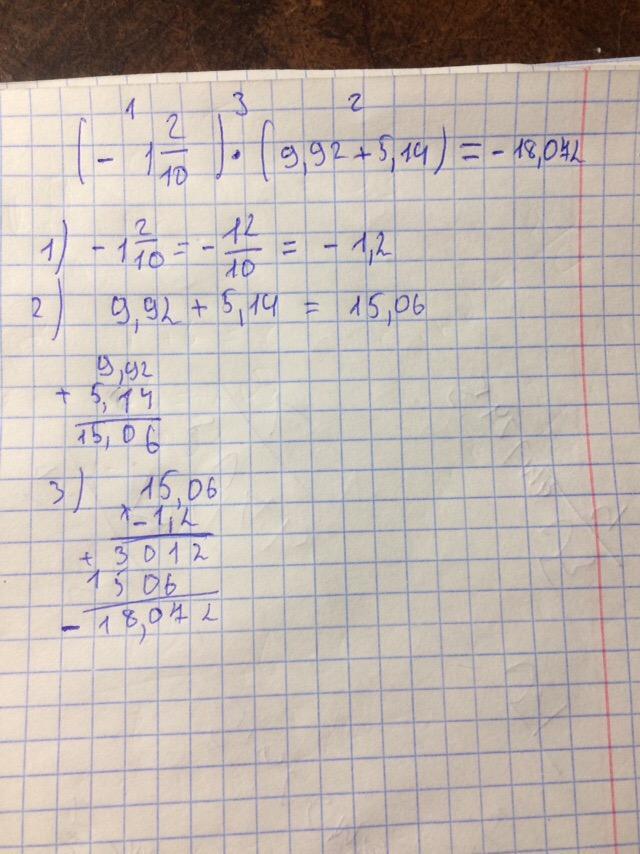 1 3 2
(- 1 2/10) · (9,92 + 5,14) = - 18,072
1) - 1 2/10 = - 12/10 = - 1,2
2) 9,92 + 5,14 = 15,06
9,92
+ 5,14
15,06
3) 15,06
x - 1,2
+ 3012
1506
- 18,072